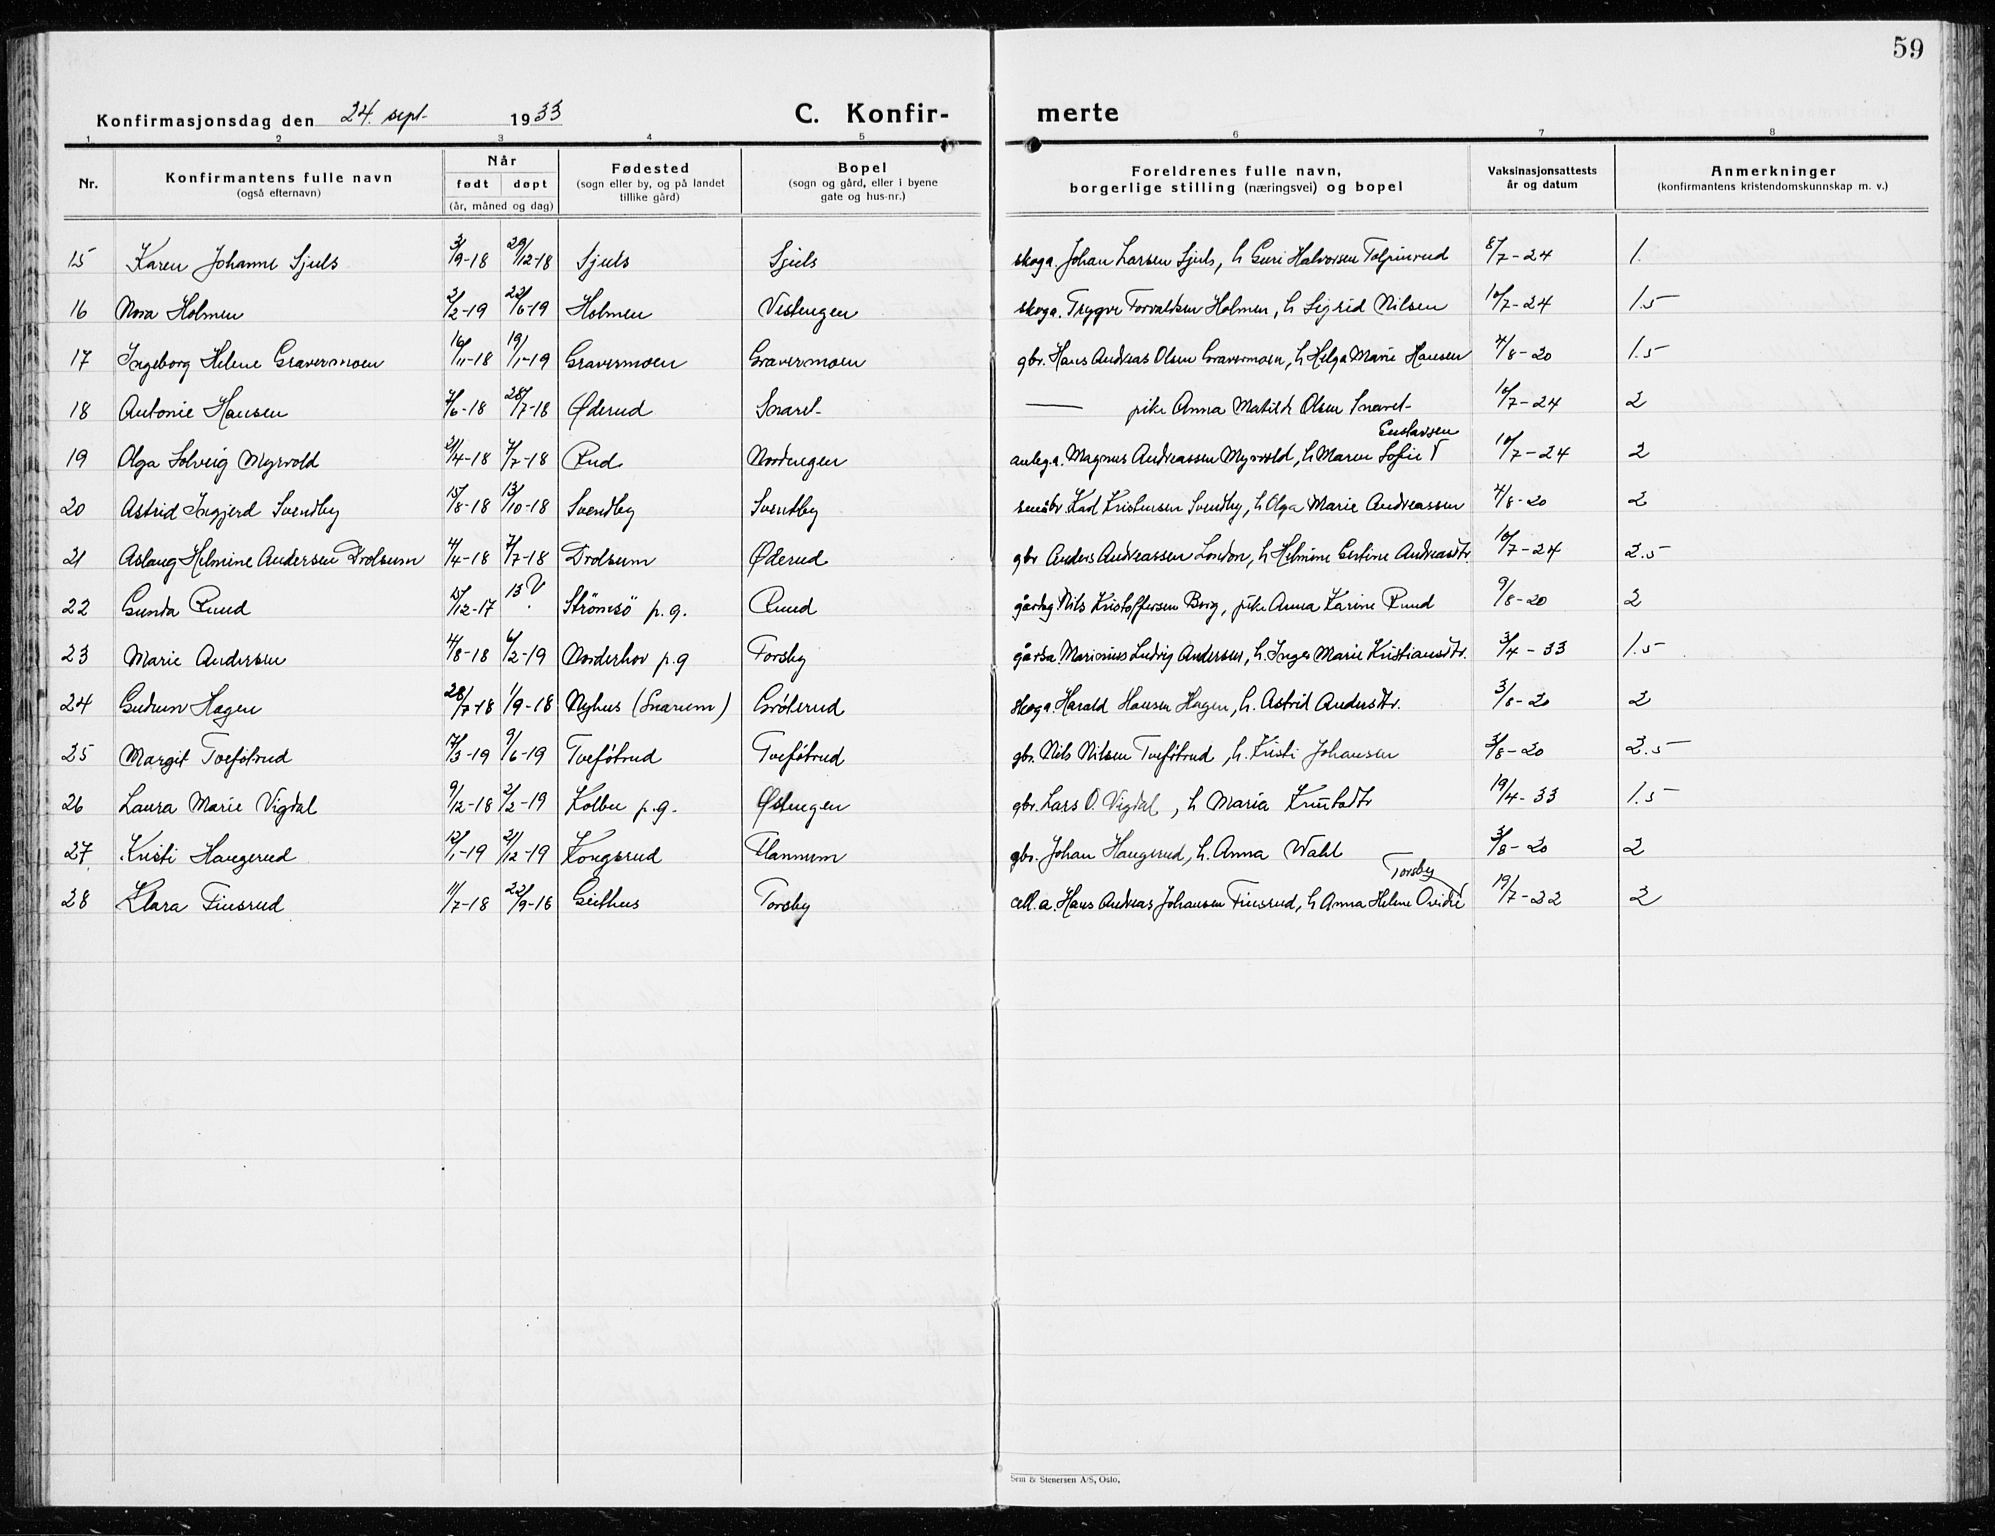 59
Konfirmasjonsdag den 24. sept. 1933 C. Konfir- merte
1 2 3 4 5 6 7 8
Nr. Konfirmantens fulle navn (også efternavn) Når født døpt (år, måned og dag) Fødested (sogn eller by, og på landet tillike gård) Bopel (sogn og gård, eller i byene gate og hus-nr.) Foreldrenes fulle navn, borgerlige stilling (næringsvei) og bopel Vaksinasjonsattests år og datum Anmerkninger (konfirmantens kristendomskunnskap m. v.)
15 Karen Johanne Sjuls 3/9-18 29/12-18 Sjuls Sjuls skoga. Johan Larsen Sjuls, h Guri Halvorsen Tolpinrud 8/7-24 1.
16 Nora Holmen 3/2-19 22/6-19 Holmen Vestengen skoga. Trygve Torvaldsen Holmen, h Sigrid Nilsen 10/7-24 1.5
17 Ingeborg Helene Gravermoen 16/11-18 19/1-19 Gravermoen Gravermoen gbr. Hans Andreas Olsen Gravermoen, h Helga Marie Hansen 4/8-20 1.5
18 Antonie Hansen 7/6-18 28/7-18 Øderud Snaret — pike Anna Matilde Olsen Snaret 10/7-24 2
Gustavsen
19 Olga Solveig Myrvold 21/4-18 7/7-18 Rud Nordengen anleg.a. Magnus Andreassen Myrvold, h Maren Sofie V 10/7-24 2
20 Astrid Ingjerd Svendby 15/8-18 13/10-18 Svendby Svendby småbr. Karl Kristensen Svendby, h Olga Marie Andreassen 4/8-20 2
21 Aslaug Helmine Andersen Drolsum 4/4-18 7/7-18 Drolsum Øderud gbr Anders Andreassen London, h Helmine Andreasdtr. 10/7-24 2.5
22 Gunda Ruud 15/12-17 13 V Strömsö p.g. Ruud Nils Kristoffersen Berg, pike Anna Karine Ruud 9/8-20 2
23 Marie Andersen 4/8-18 6/2-19 Norderhov p.g Torsby gårdsa. Marinius Ludvig Andersen, h. Inger Marie Kristiansdtr. 3/4-33 1.5
24 Gudrun Hagen 28/7-18 1/9-18 Nyhus (Snarum) Gröterud skoga. Harald Hansen Hagen, h. Astrid Andersdtr. 3/8-20 2
25 Margit Tvefötrud 17/3-19 9/6-19 Tvefötrud Tvefötrud gbr. Nils Nilsen Tvefötrud, h. Kristi Johansen 3/8-20 2.5
26 Laura Marie Vigdal 9/12-18 2/2-19 Kolbu p.g. Østengen gbr. Lars O. Vigdal, h Maria Knutsdtr 19/4-33 1.5
27. Kristi Haugerud 12/1-19 21/12-19 Kongsrud Flannum gbr. Johan Haugerud, h. Anna Wahl 3/8-20 2
Torsby
28 Klara Finsrud 11/7-18 22/9-18 Geithus Torsby cell.a. Hans Andreas Johansen Finsrud, h Anna Helene Ovidie 19/7-22 2
Sem & Stenersen A/S, Oslo.